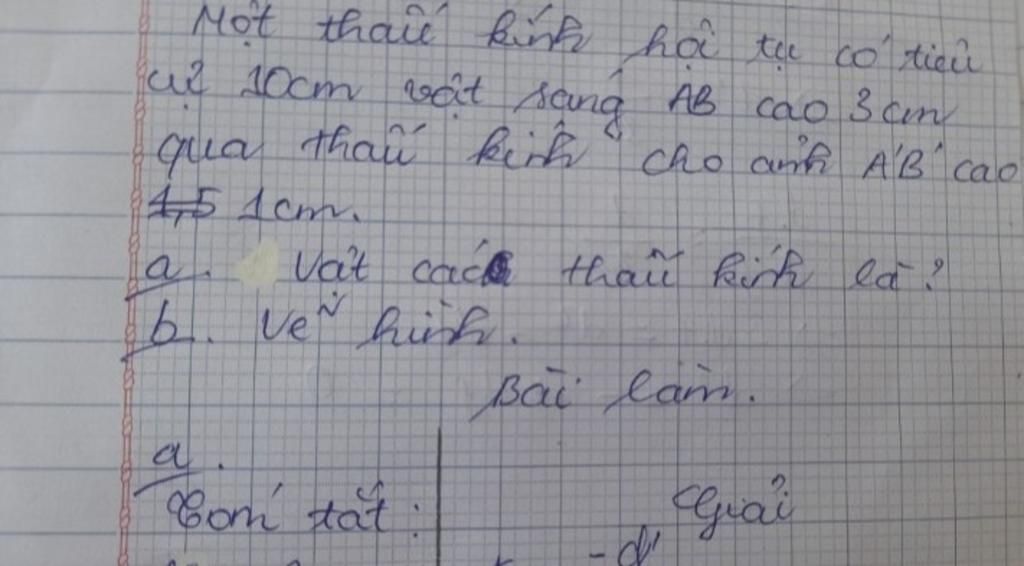 Một thấu kính hội tụ có tiêu
cự 10cm vật sáng AB cao 3cm
qua thấu kính cho ảnh A'B' cao
1,5 1cm.
a. Vật cách thấu kính là?
b. Vẽ hình.
Bài làm.
a.
Tóm tắt: Giải
- d'